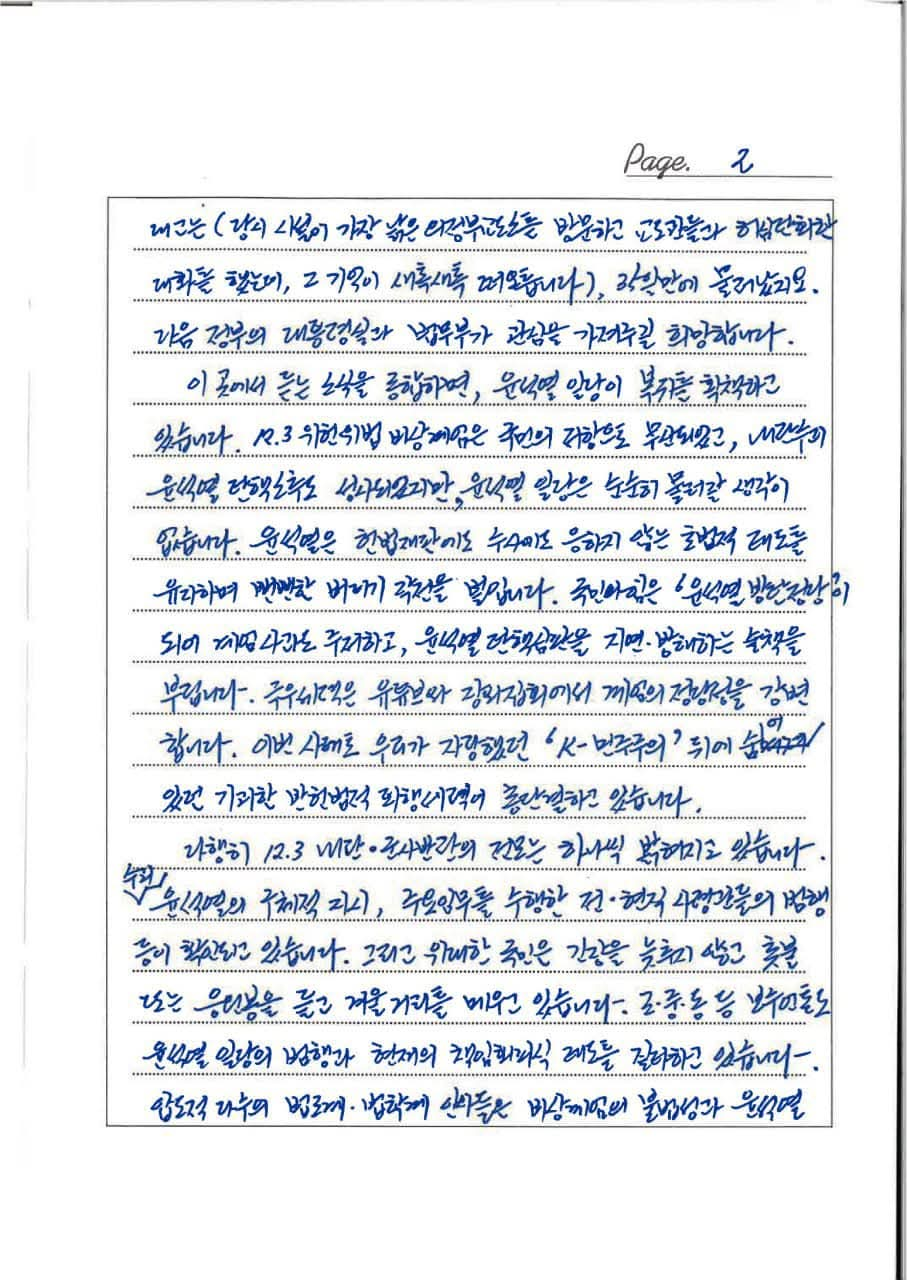 Page. 2
내고는 (당시 시설이 가장 낡은 의정부교도소를 방문하고 교도관들과 허심탄회한
대화를 했는데, 그 기억이 새록새록 떠오릅니다), 35일만에 물러났지요.
다음 정부의 대통령실과 법무부가 관심을 가져주길 희망합니다.
이 곳에서 듣는 소식을 종합하면, 윤석열 일당이 복귀를 획책하고
있습니다. 12.3 위헌위법 비상계엄은 국민의 저항으로 무산되었고, 내란수괴
윤석열 탄핵소추도 성사되었지만, 윤석열 일당은 순순히 물러갈 생각이
없습니다. 윤석열은 헌법재판에도 수사에도 응하지 않는 초법적 태도를
유지하며 뻔뻔한 버티기 작전을 벌입니다. 국민의힘은 '윤석열 방탄정당'이
되어 계엄 사과도 주저하고, 윤석열 탄핵심판을 지연·방해하는 술책을
부립니다. 극우세력은 유튜브와 광화문집회에서 계엄의 정당성을 강변
합니다. 이번 사태로 우리가 자랑했던 'K-민주주의' 뒤에 숨어
있던 기괴한 반헌법적 퇴행세력이 총단결하고 있습니다.
다행히 12.3 내란·군사반란의 전모는 하나씩 밝혀지고 있습니다.
수괴
윤석열의 구체적 지시, 주요임무를 수행한 전·현직 사령관들의 범행
등이 확인되고 있습니다. 그리고 위대한 국민은 긴장을 늦추지 않고 촛불
또는 응원봉을 들고 겨울 거리를 메우고 있습니다. 조·중·동 등 보수언론도
윤석열 일당의 범행과 현재의 책임회피식 태도를 질타하고 있습니다.
압도적 다수의 법조계·법학계 인사들은 비상계엄의 불법성과 윤석열